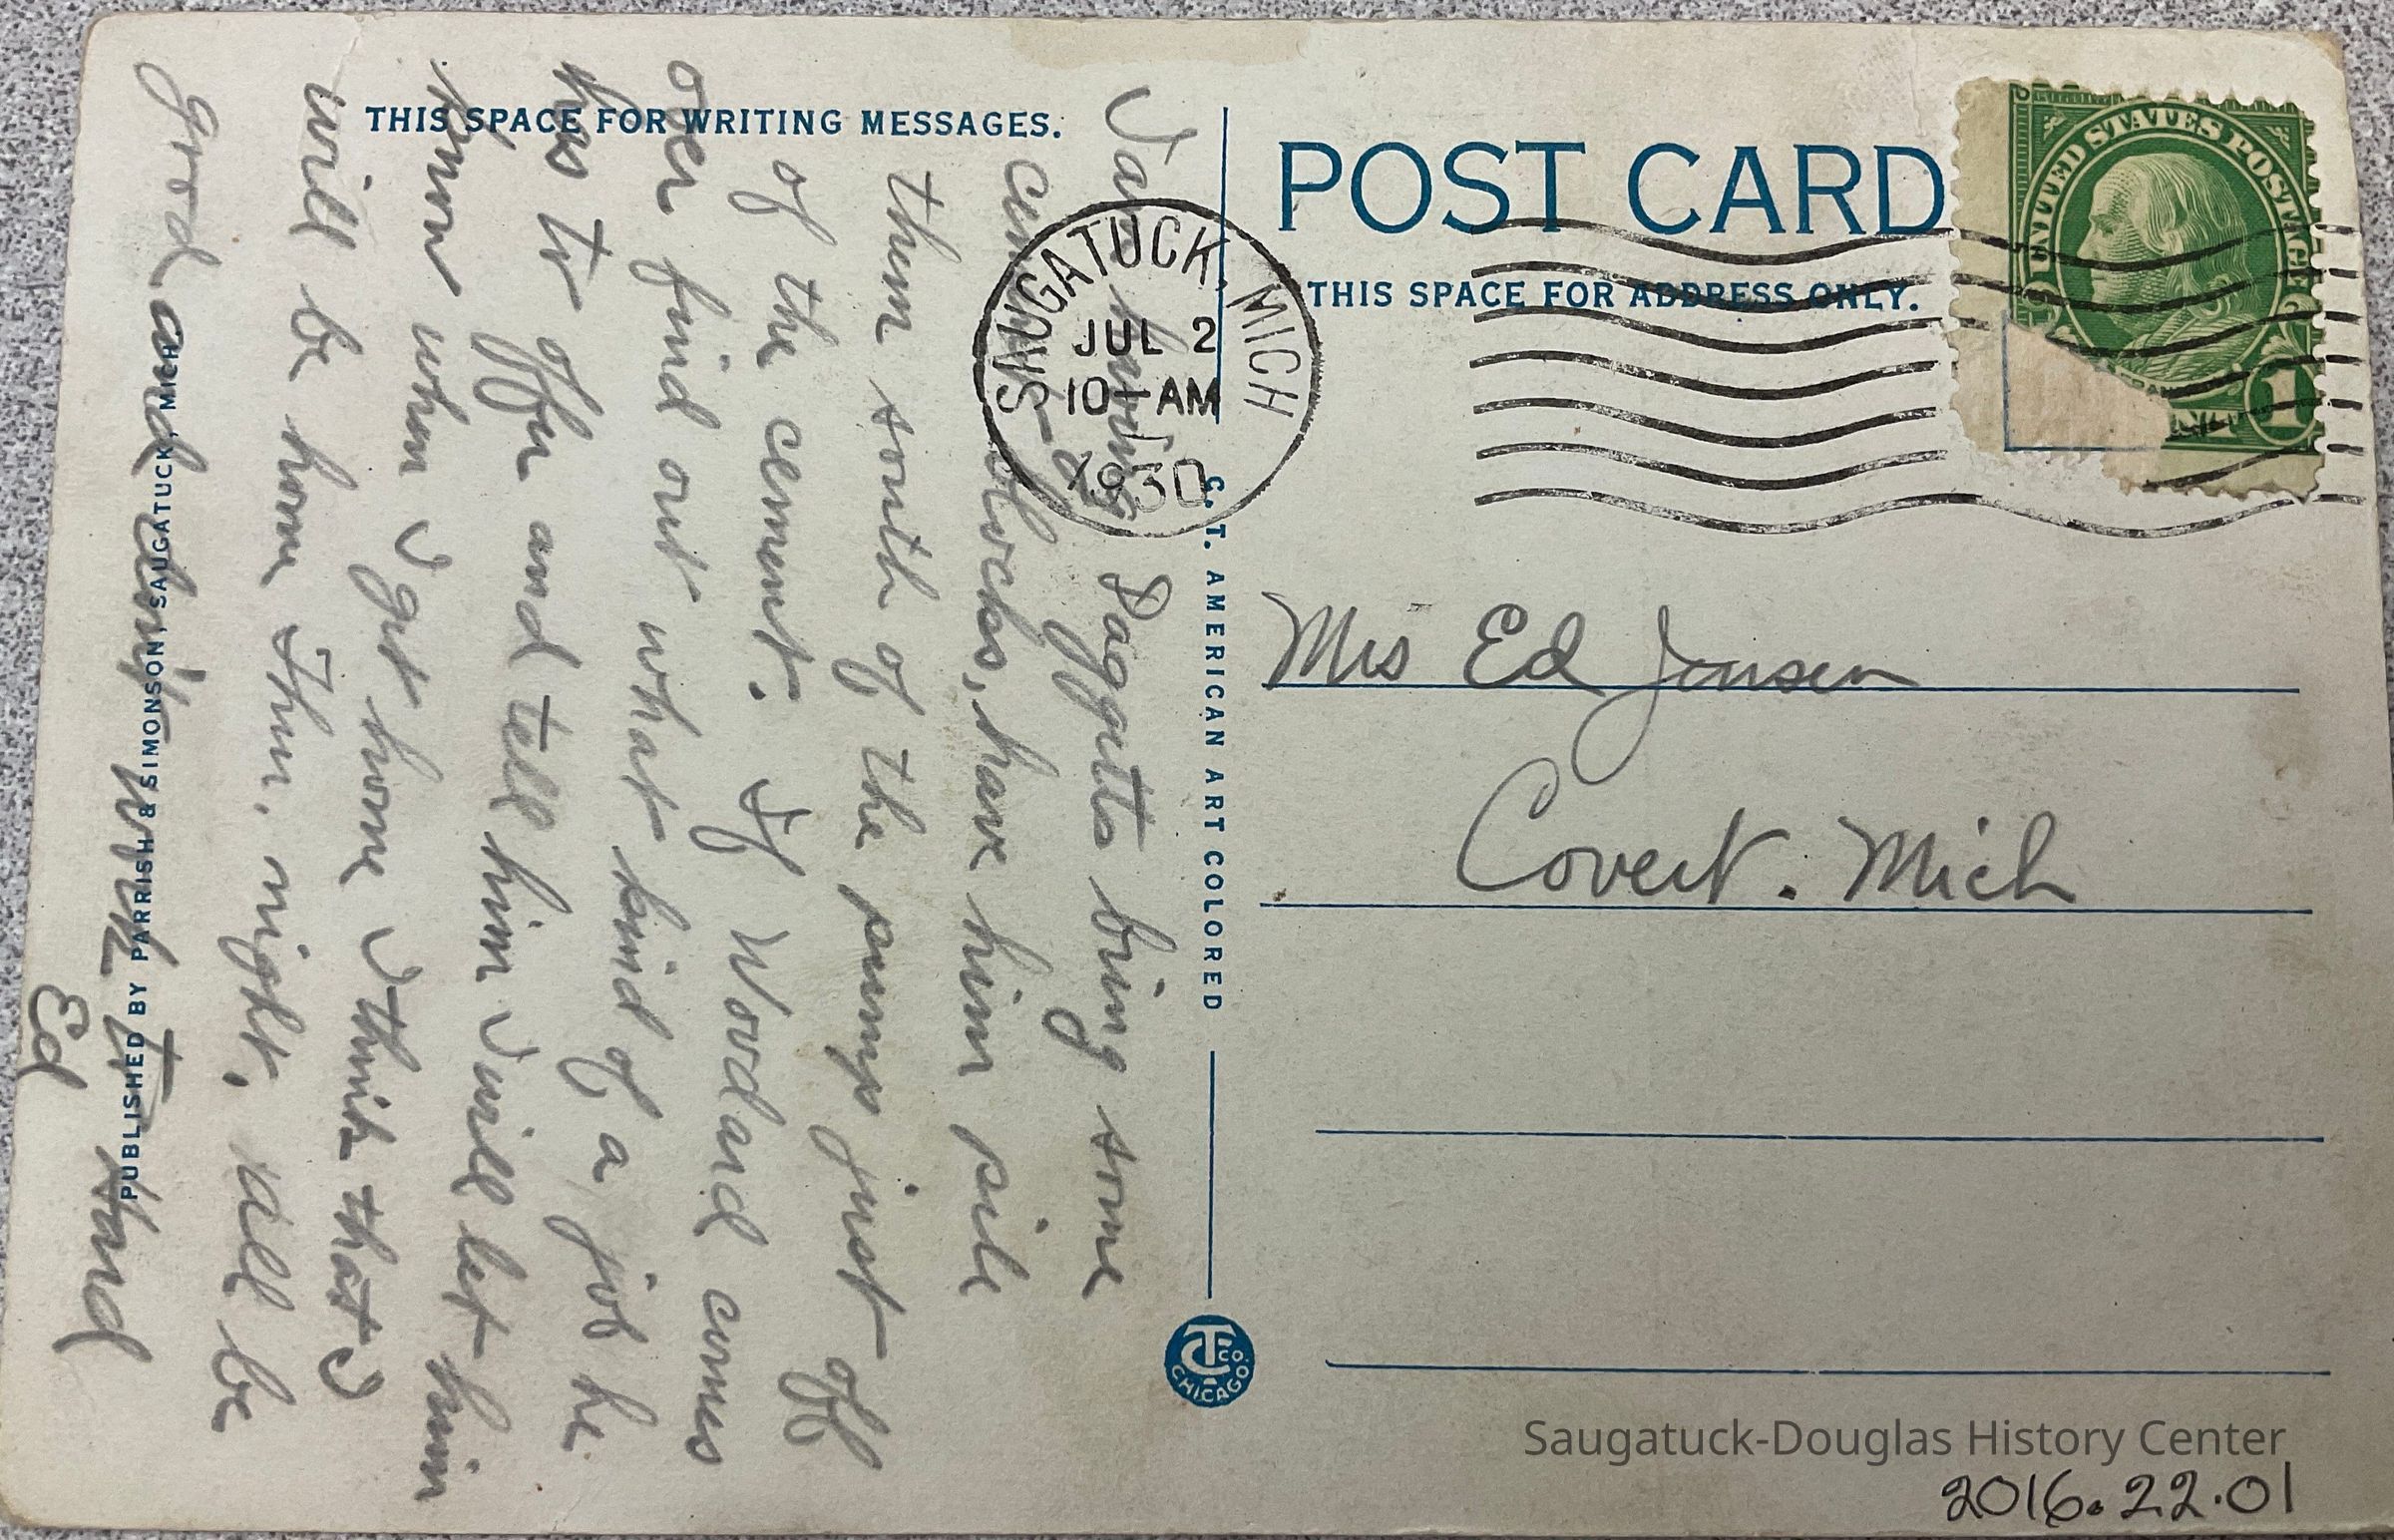 THIS SPACE FOR WRITING MESSAGES.
POST CARD
THIS SPACE FOR ADDRESS ONLY.
UNITED STATES POSTAGE
1
SAUGATUCK, MICH
JUL 2
10-AM
1930
Mrs Ed Jensen
Covert. Mich
having Daggetts bring some
cement blocks, have him pile
them south of the pump just off
of the cement. If Woodard comes
over find out what kind of a job he
has to offer and tell him I will let him
know when I get home I think that I
will be home Thur. night, will be
good and don't work to hard
Ed
C. T. AMERICAN ART COLORED
PUBLISHED BY PARRISH & SIMONSON, SAUGATUCK, MICH.
CT CO. CHICAGO
Saugatuck-Douglas History Center
2016.22.01